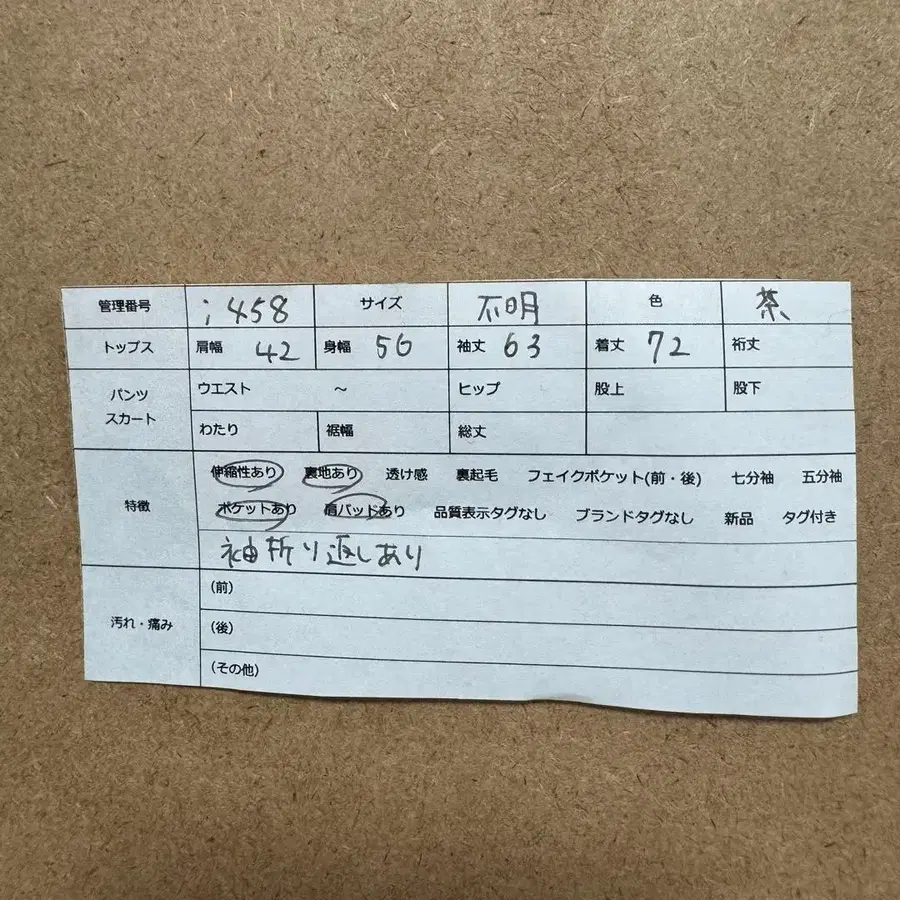 管理番号 i458 サイズ 不明 色 茶
トップス 肩幅 42 身幅 50 袖丈 63 着丈 72 裄丈
パンツ ウエスト ～ ヒップ 股上 股下
スカート わたり 裾幅 総丈
特徴 伸縮性あり 裏地あり 透け感 裏起毛 フェイクポケット(前・後) 七分袖 五分袖
ポケットあり 肩パッドあり 品質表示タグなし ブランドタグなし 新品 タグ付き
袖折り返しあり
汚れ・痛み (前)
(後)
(その他)